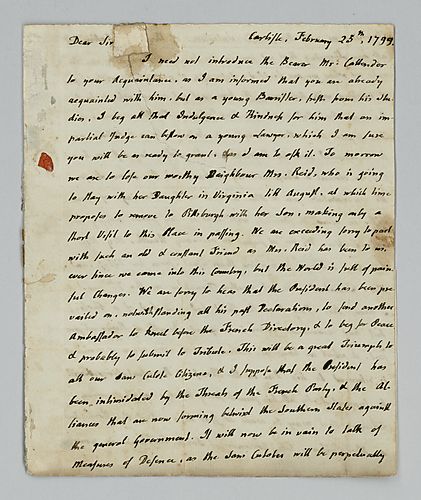 Dear Sir
Carlisle, February 25th, 1799.
I need not introduce the Bearer Mr. Callendar
to your Acquaintance, as I am informed that you are already
acquainted with him, but as a young Barrister, fresh from his Stu-
dies, I beg all that Indulgence & Kindness for him that an im-
partial Judge can bestow on a young Lawyer, which I am sure
you will be as ready to grant, as I am to ask it. To morrow
we are to lose our worthy Neighbour Mrs. Reid, who is going
to stay with her Daughter in Virginia till August, at which time
proposes to remove to Pittsburgh with her Son, making only a
short Visit to this Place in passing. We are exceeding sorry to part
with such an old & constant Friend as Mrs. Reid has been to us,
ever since we came into this Country, but the World is full of pain-
ful Changes. We are sorry to hear that the President has been pre-
vailed on, notwithstanding all his past Declarations, to send another
Ambassador to kneel before the French Directory, & to beg for Peace
& probably to submit to Tribute. This will be a great Triumph to
all our Sans Culote Citizens, & I suppose that the President has
been intimidated by the Threats of the French Party, & the Al-
liances that are now forming betwixt the Southern States against
the general Government. It will now be in vain to talk of
Measures of Defence, as the Sans Culotes will be perpetually